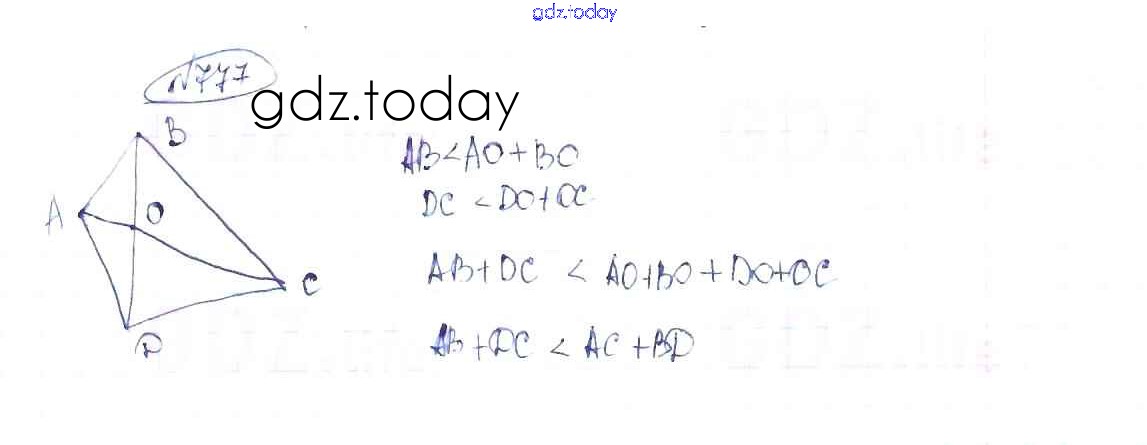 gdz.today
№777
gdz.today
B
AB<AO+BO
DC <DO+OC
A O
AB+DC < AO+BO+DO+OC
C
AB+DC < AC+BD
D